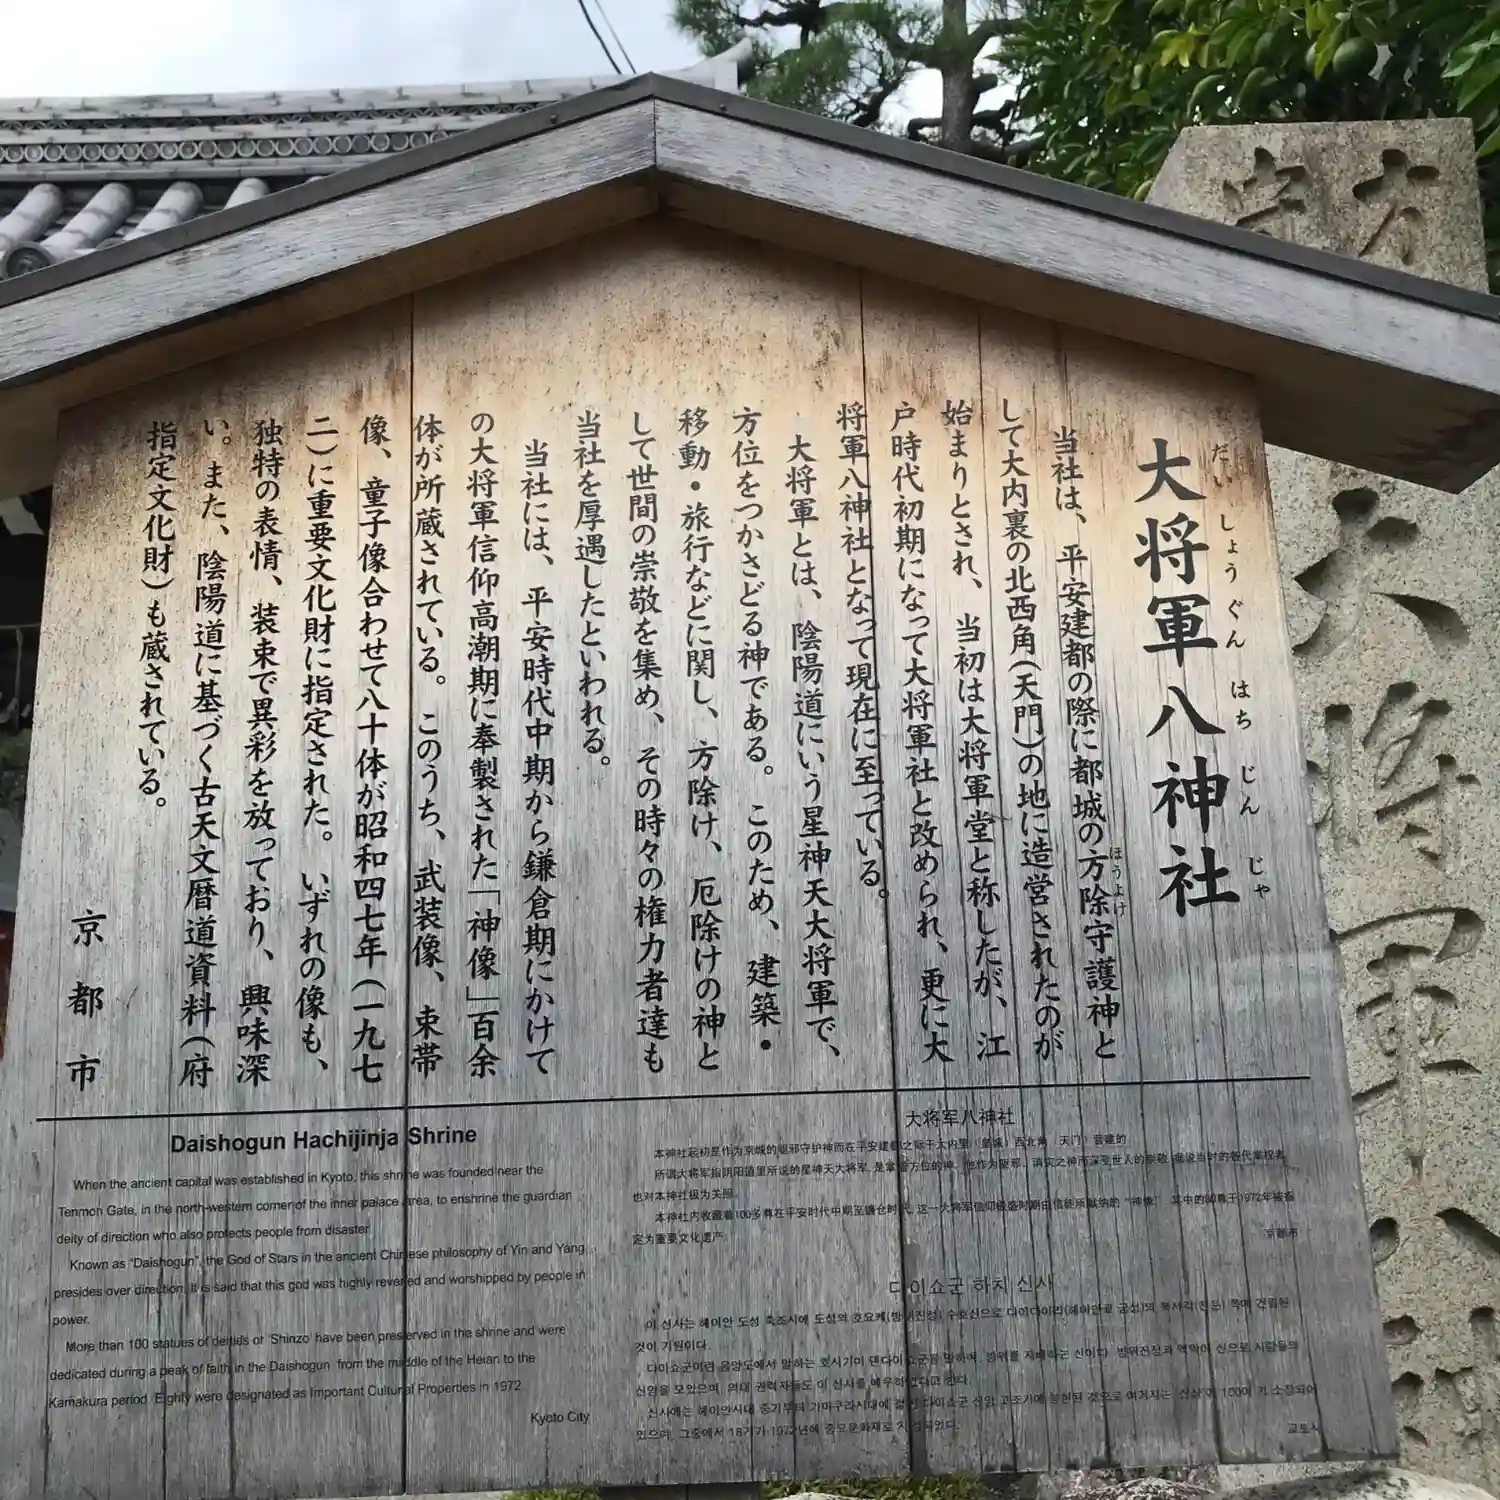 大将軍八神社
だいしょうぐんはちじんじゃ
当社は、平安建都の際に都城の方除守護神と
ほうよけ
して大内裏の北西角(天門)の地に造営されたのが
始まりとされ、当初は大将軍堂と称したが、江
戸時代初期になって大将軍社と改められ、更に大
将軍八神社となって現在に至っている。
大将軍とは、陰陽道にいう星神天大将軍で、
方位をつかさどる神である。このため、建築・
移動・旅行などに関し、方除け、厄除けの神と
して世間の崇敬を集め、その時々の権力者達も
当社を厚遇したといわれる。
当社には、平安時代中期から鎌倉期にかけて
の大将軍信仰高潮期に奉製された「神像」百余
体が所蔵されている。このうち、武装像、束帯
像、童子像合わせて八十体が昭和四七年(一九七
二)に重要文化財に指定された。いずれの像も、
独特の表情、装束で異彩を放っており、興味深
い。また、陰陽道に基づく古天文暦道資料(府
指定文化財)も蔵されている。
京都市
Daishogun Hachijinja Shrine
When the ancient capital was established in Kyoto, this shrine was founded near the
Tenmon Gate, in the north-western corner of the inner palace area, to enshrine the guardian
deity of direction who also protects people from disaster
Known as "Daishogun", the God of Stars in the ancient Chinese philosophy of Yin and Yang
presides over direction. It is said that this god was highly revered and worshipped by people in
power.
More than 100 statues of deities or 'Shinzo' have been preserved in the shrine and were
dedicated during a peak of faith in the Daishogun from the middle of the Heian to the
Kamakura period. Eighty were designated as Important Cultural Properties in 1972
Kyoto City
大将军八神社
本神社起初是作为京城的驱邪守护神而在平安建都之际于大内里(皇城)西北角(天门)营建的
所谓大将军指阴阳道里所说的星神天大将军,是掌管方位的神。他作为驱邪、消灾之神而深受世人的崇敬,据说当时的各代掌权者
也对本神社极为关照。
本神社内收藏着100多尊在平安时代中期至镰仓时代,这一大将军信仰极盛时期由信徒所献纳的"神像"。其中的80尊于1972年被指
定为重要文化遗产。
京都市
다이쇼군 하치 신사
이 신사는 헤이안 도성 축조시에 도성의 호요케 수호신으로 다이다이리(헤이안쿄 궁성)의 북서각(천문) 쪽에 건립된
것이 기원이다.
다이쇼군이란 음양도에서 말하는 호시가미 텐다이쇼군을 말하며, 방위를 지배하는 신이다.
신앙을 모았으며, 역대 권력자들도 이 신사를 예우하였다고 한다.
신사에는 헤이안시대 중기부터 가마쿠라시대에 걸친 다이쇼군 신앙 고조기에 봉헌된 것으로 여겨지는 '신상'이 100여 기 소장되어
있으며, 그중에서 1972년에 중요문화재로 지정되었다.
교토시
方
守
大将軍